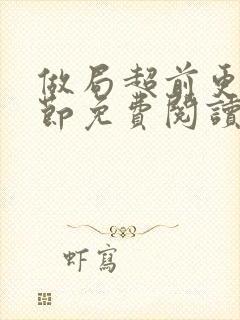 做局超前更
節免費閱讀
虾寫